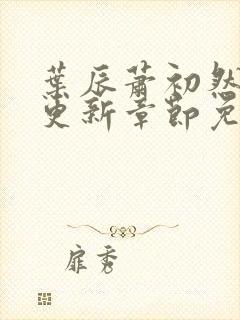 葉辰蕭初然
更新章節免
扉秀